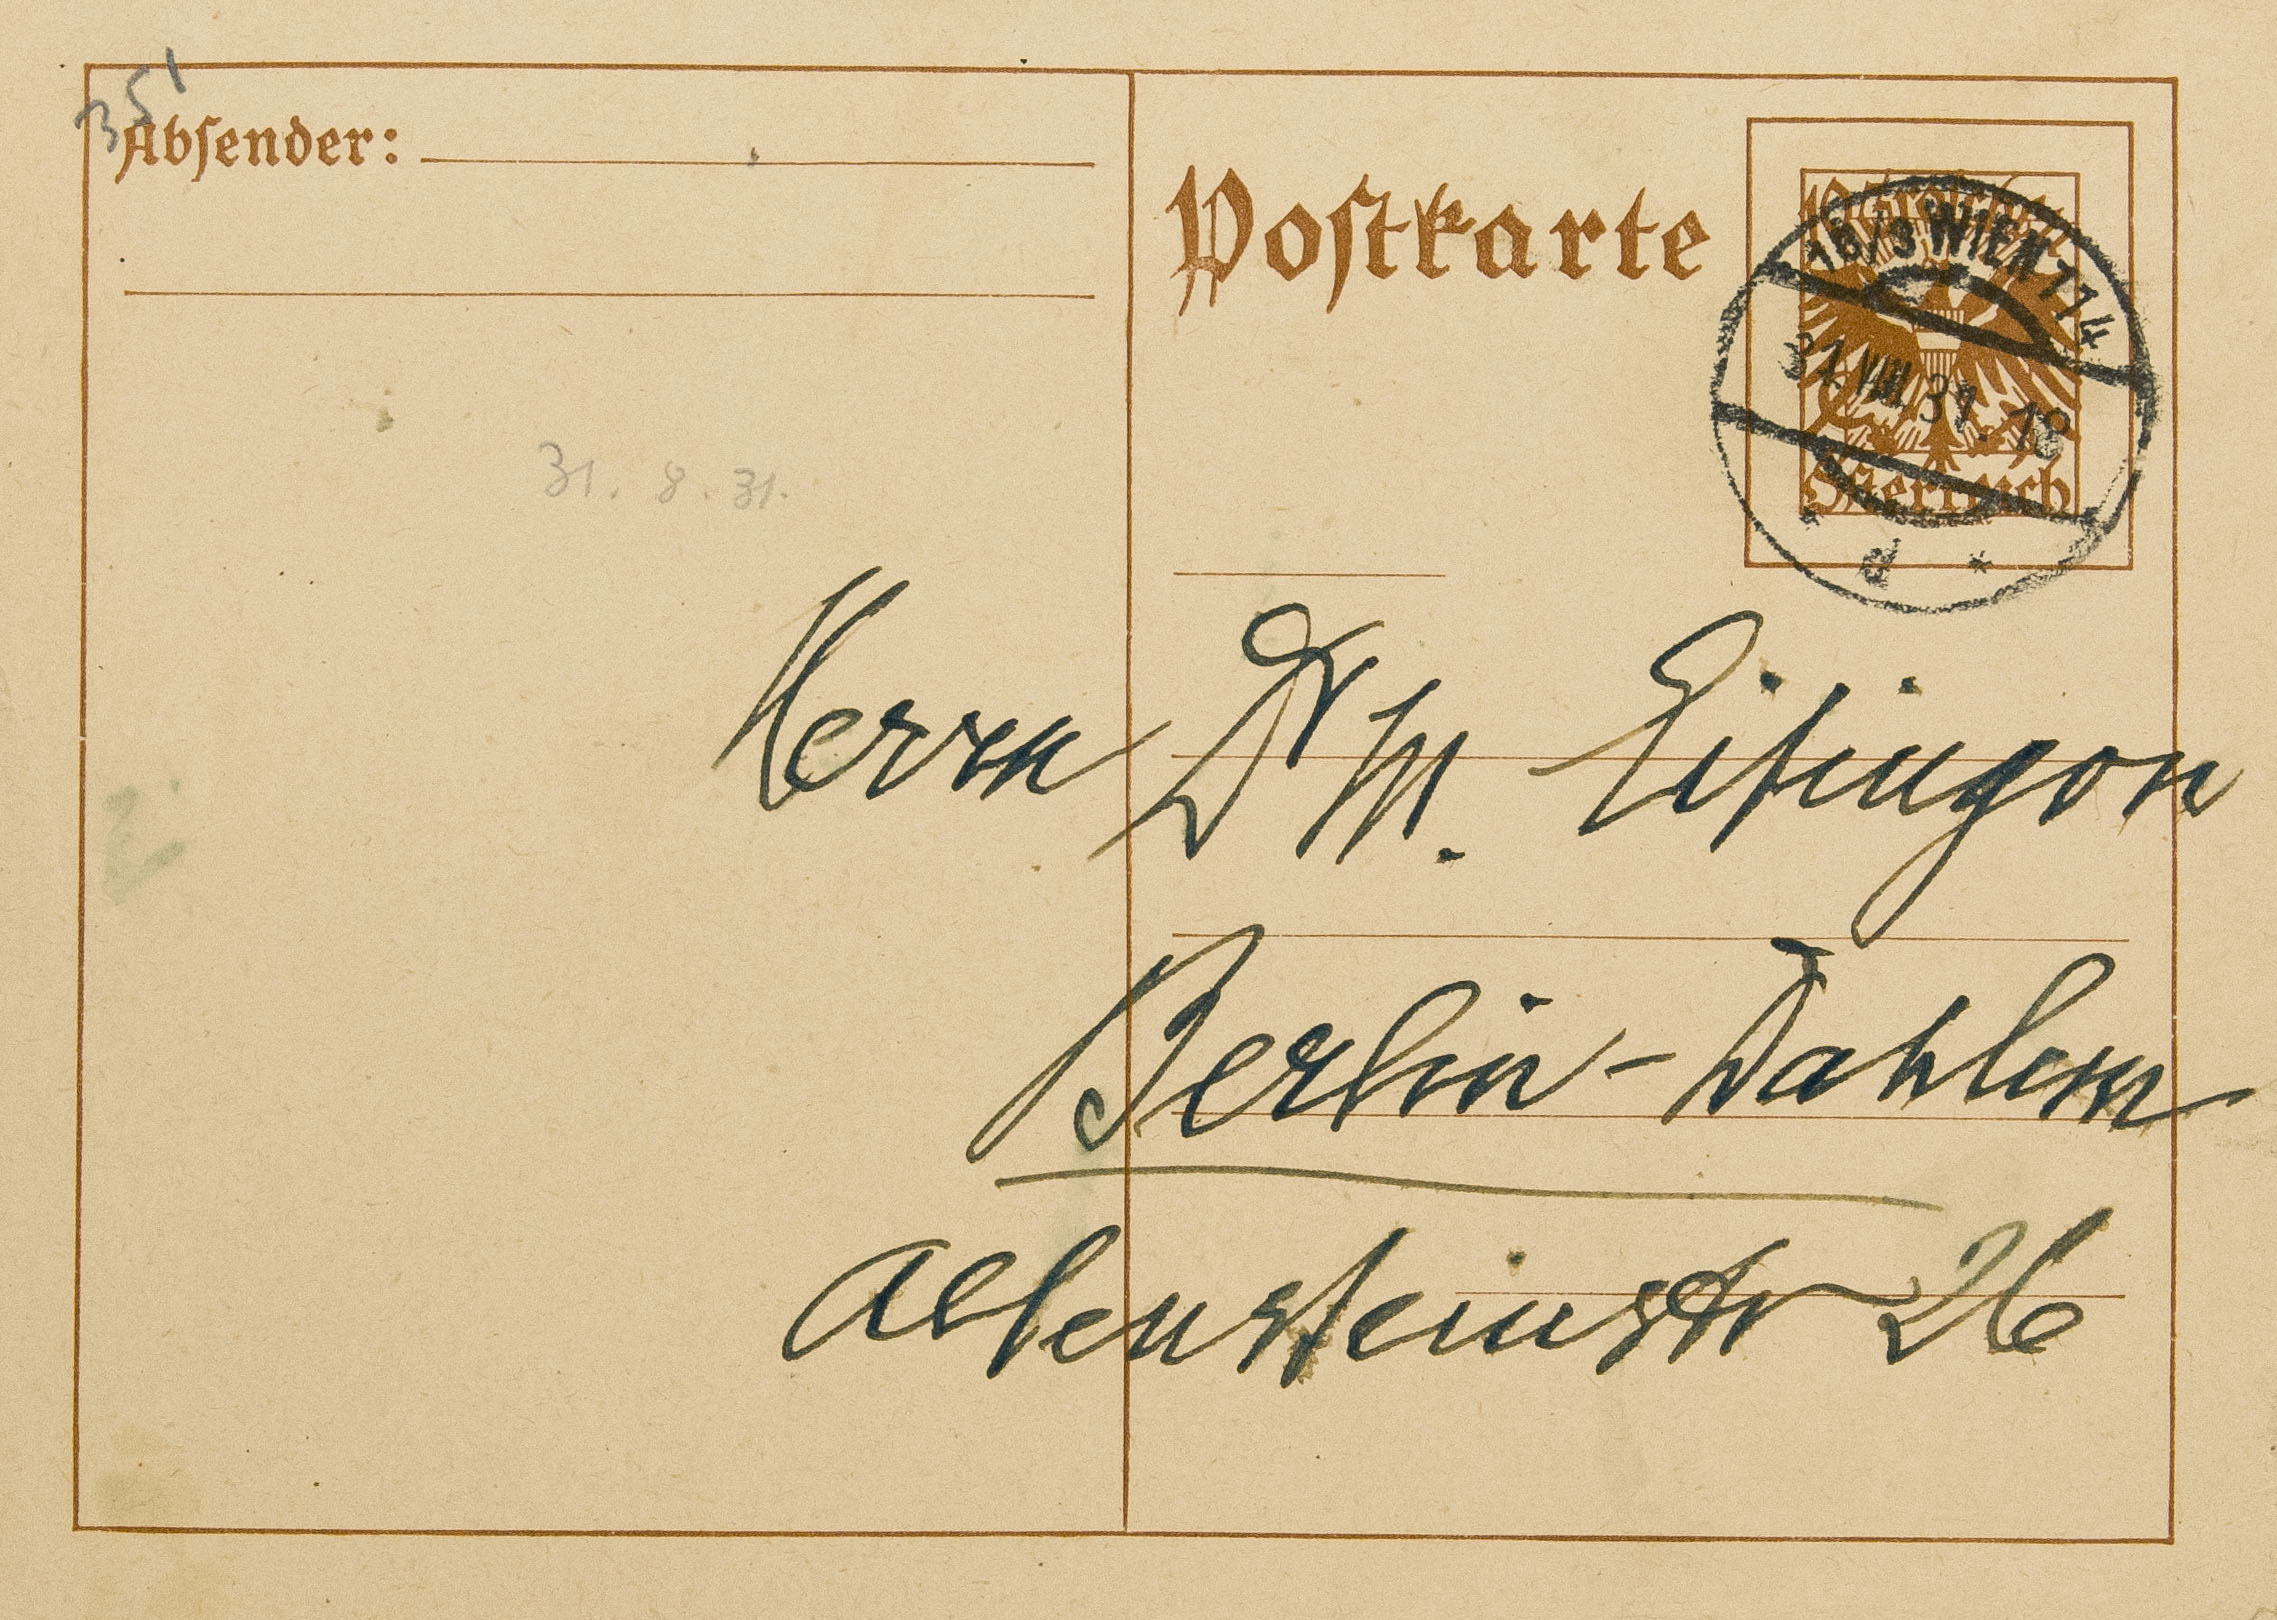 351
Absender:
Postkarte
18/3 WIEN 114
31.VIII.31.18
* d *
Österreich
31. 8. 31.
Herrn Dr M. Eitingon
Berlin-Dahlem
Altensteinstr 26